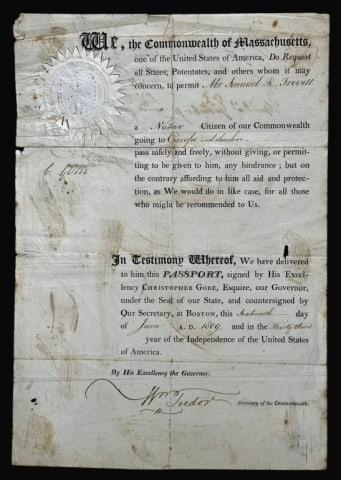 We, the Commonwealth of Massachusetts,
one of the United States of America, Do Request
all States, Potentates, and others whom it may
concern, to permit Mr. Samuel R. Trevett
a Native Citizen of our Commonwealth
going to Europe and elsewhere
pass safely and freely, without giving, or permitting
to be given to him, any hindrance; but on
the contrary affording to him all aid and protec-
tion, as We would do in like case, for all those
who might be recommended to Us.
In Testimony Whereof, We have delivered
to him this PASSPORT, signed by His Excel-
lency CHRISTOPHER GORE, Esquire, our Governor,
under the Seal of our State, and countersigned by
Our Secretary, at BOSTON, this Sixteenth day
of June A. D. 1809, and in the Thirty third
year of the Independence of the United States
of America.
By His Excellency the Governor.
Wm Tudor
Secretary of the Commonwealth.